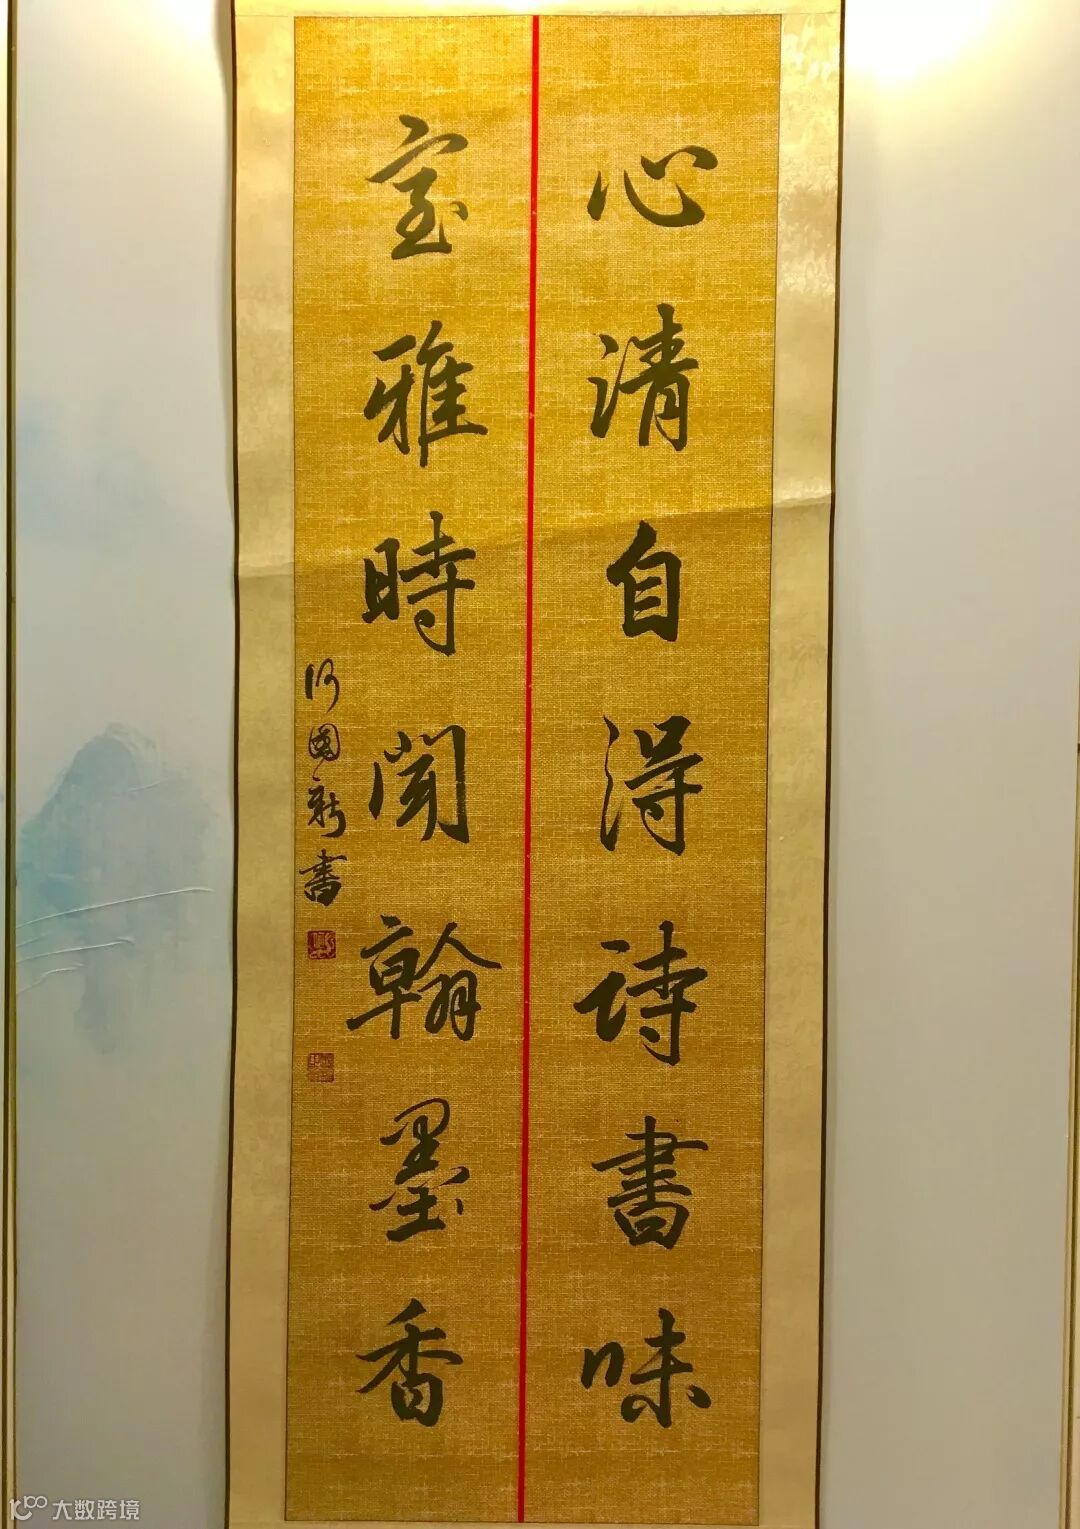 心清自得诗書味
室雅時闻翰墨香
何國新書
大数跨境